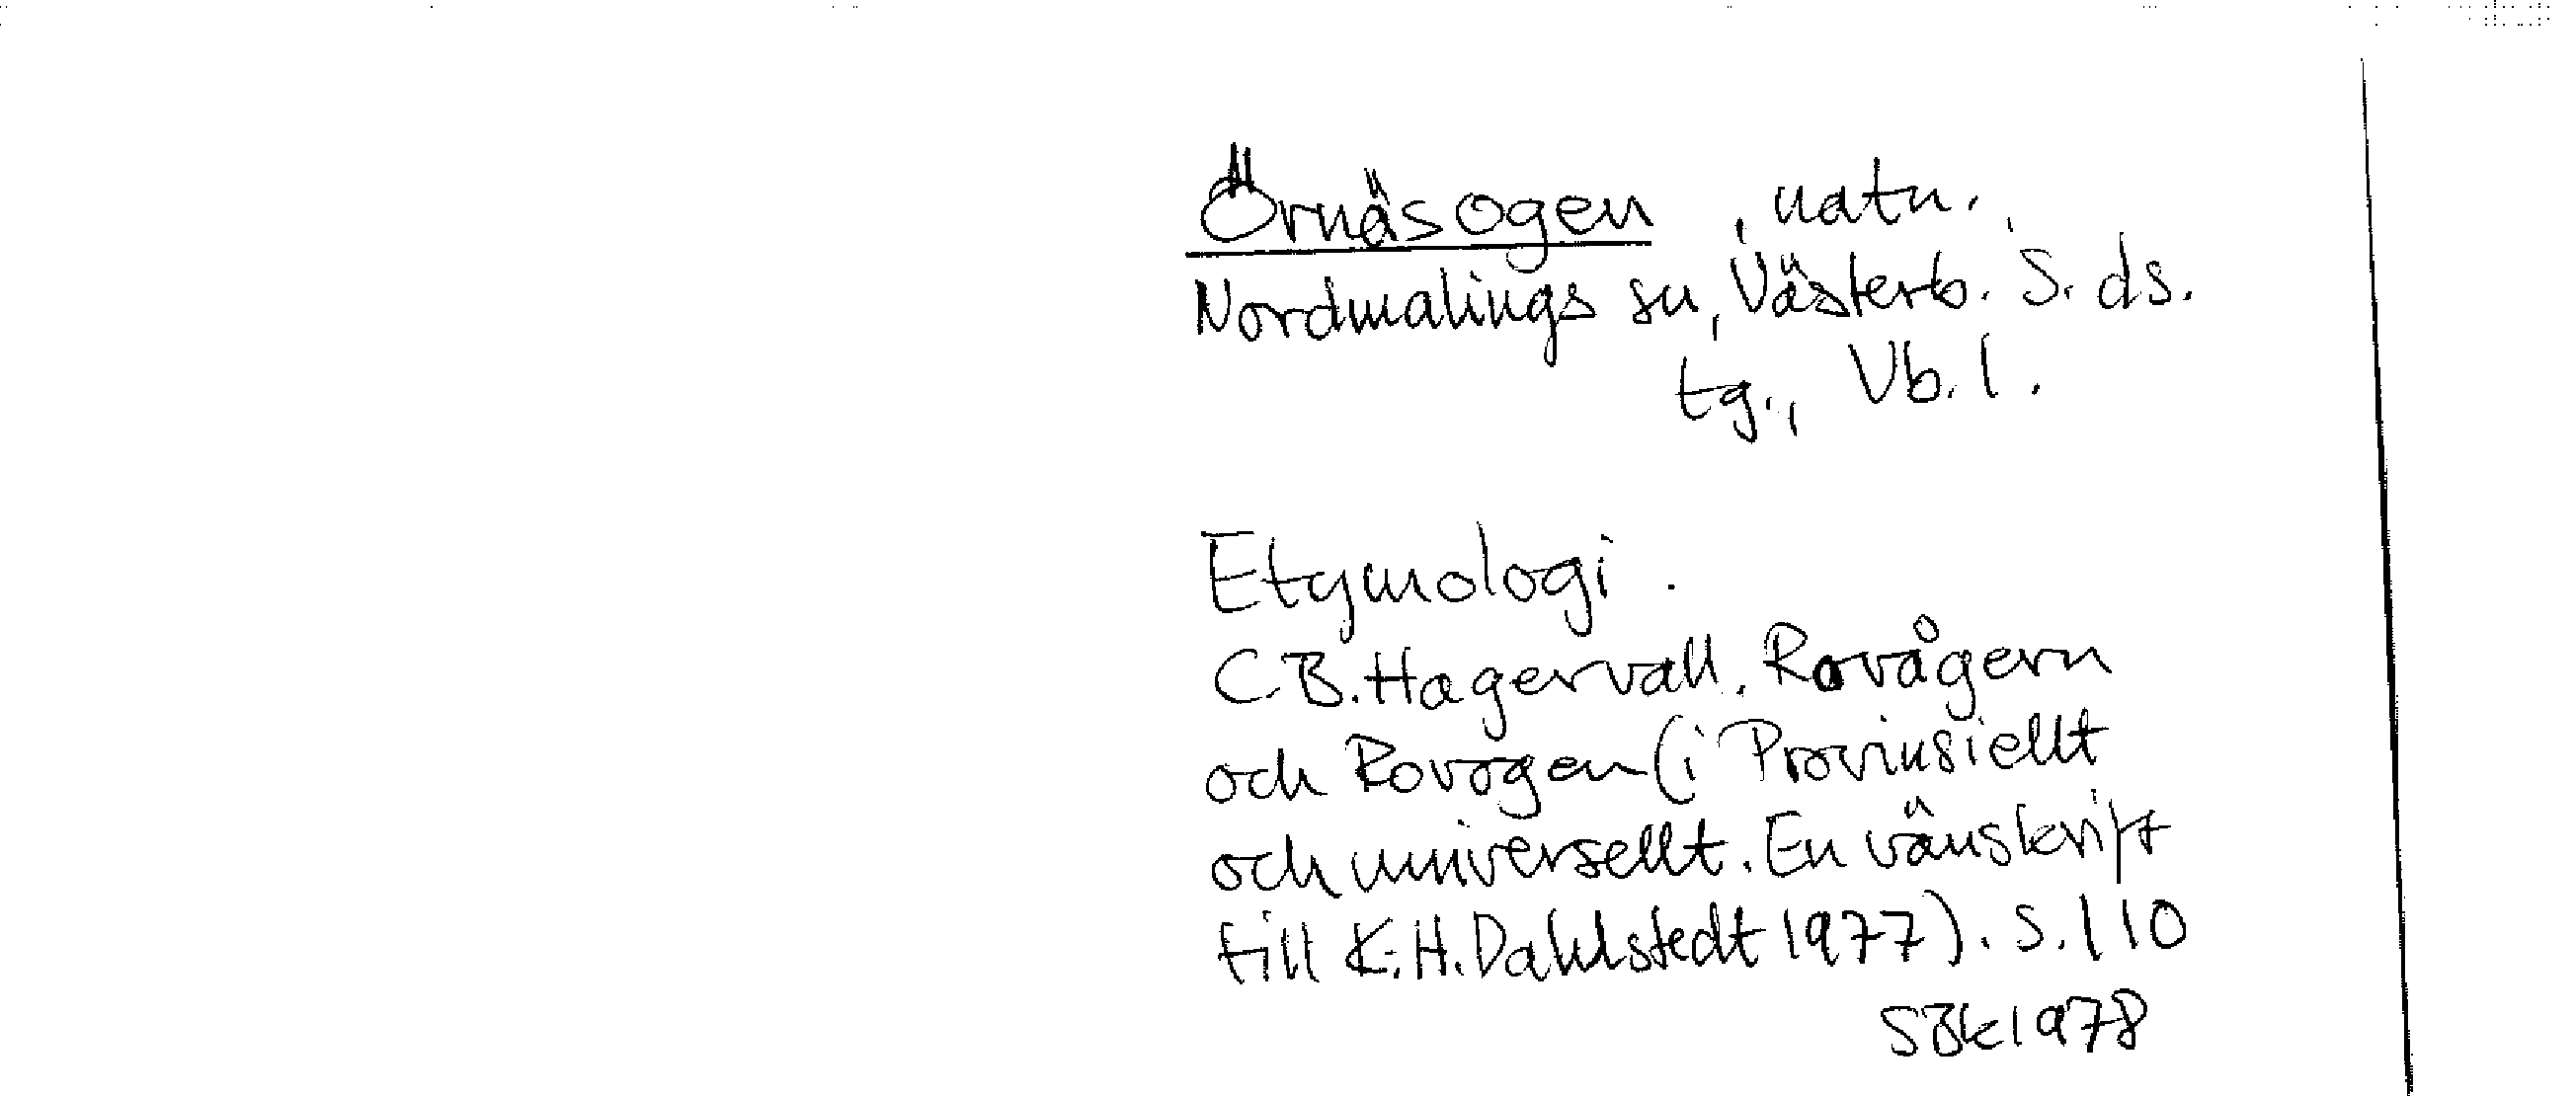 Örnäsogen, natn.,
Nordmalings sn, Västerb. S. ds.
tg., Vb. l.
Etymologi.
C B. Hagervall. Rovågern
och Rovogen (i Provinsiellt
och universellt. En vänskrift
till K. H. Dahlstedt 1977). S. 110
SBk 1978